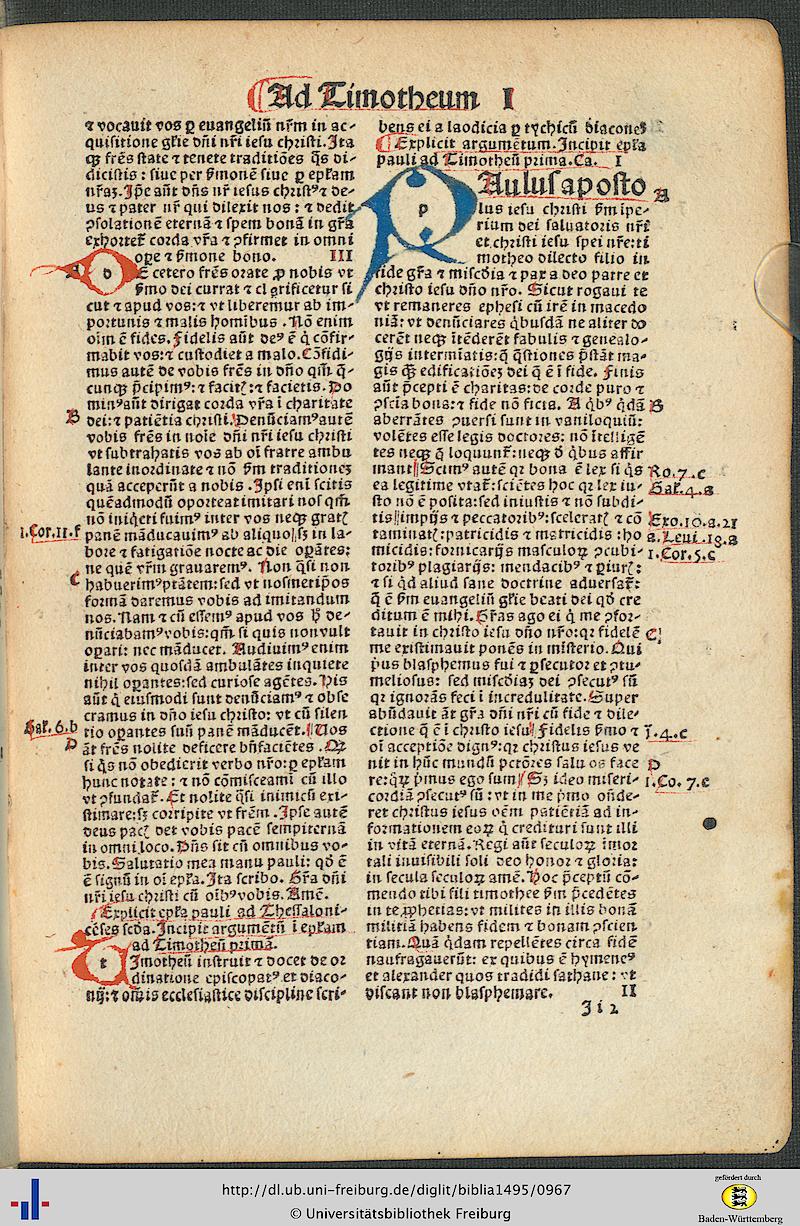 Ad Timotheum I
⁊ vocauit vos ꝑ euangeliū nr̄m in ac-
quisitione gl'ie dn̄i nr̄i iesu christi. Ita
qꝫ fr̄es state ⁊ tenete traditiōes q̄s di-
dicistis: siue per ẜmonē siue ꝑ ep̄lam
nr̄aꝫ. Ip̄e aūt dn̄s nr̄ iesus christꝰ ⁊ de-
us ⁊ pater nr̄ qui dilexit nos: ⁊ dedit
ꝯsolationem eternā ⁊ spem bonā in gr̄a
exhortet̄ corda vr̄a ⁊ ꝯfirmet in omni
oꝑe ⁊ ẜmone bono. III
A DE cetero fr̄es orate ꝓ nobis vt
ẜmo dei currat ⁊ clarificetur si
cut ⁊ apud vos: ⁊ vt liberemur ab im-
portunis ⁊ malis hominibus. Nō enim
oīm ē fides. Fidelis aūt deꝰ ē q̇ cōfir-
mabit vos: ⁊ custodiet a malo. Cōfidi-
mus autē de vobis fr̄es in dn̄o qm̄ q̄-
cunqꝫ p̄cipimꝰ: ⁊ facitꝭ: ⁊ facietis. Do
minꝰ aūt dirigat corda vr̄a ī charitate
B dei: ⁊ patiētia christi. Denūciamꝰ autē
vobis fr̄es in noīe dn̄i nr̄i iesu christi
vt subtrahatis vos ab oī fratre ambu
lante inordinate ⁊ nō ẜm traditionez
quā acceperūt a nobis. Ipsi enī scitis
quēadmodū oporteat imitari nos qm̄
nō inq̇eti fuimꝰ inter vos neqꝫ gratꝭ
1. Cor. 11. f panē māducauimꝰ ab aliquo: sꝫ in la-
bore ⁊ fatigatiōe nocte ac die oꝑātes:
ne quē vr̄m grauaremꝰ. Non q̄si non
C habuerimꝰ ptātem: sed vt nosmetip̄os
formā daremus vobis ad imitandum
nos. Nam ⁊ cū essemꝰ apud vos h̄ de-
nūciabamꝰ vobis: qm̄ si quis non vult
oꝑari: nec māducet. Audiuimꝰ enim
inter vos quosdā ambulātes inquiete
nihil oꝑantes: sed curiose agētes. His
aūt q̇ eiusmodi sunt denūciamꝰ ⁊ obse
cramus in dn̄o iesu christo: vt cū silen
Gal. 6. b tio oꝑantes suū panē māducēt. Uos
D āt fr̄es nolite deficere bn̄faciētes. Qꝫ
si q̇s nō obedierit verbo nr̄o: ꝑ ep̄lam
hunc notate: ⁊ nō cōmisceamī cū illo
vt ꝯfundat̄. Et nolite q̄si inimicū exi-
stimare: sꝫ corripite vt fr̄em. Ipse autē
deus pacꝭ det vobis pacē sempiternā
in omni loco. Dn̄s sit cū omnibus vo-
bis. Salutatio mea manu pauli: qd̄ ē
ē signū in oī ep̄la. Ita scribo. Gr̄a dn̄i
nr̄i iesu christi cū oībꝰ vobis. Amē.
Explicit ep̄la pauli ad Thessaloni-
cēses scd̄a. Incipit argumētū ī ep̄lam
ad Timotheū primā.
TImotheū instruit ⁊ docet de or
dinatione episcopatꝰ et diaco-
nij: ⁊ om̄is ecclesiastice discipline scri-
bens ei a laodicia ꝑ tychicū diacones
Explicit argumētum. Incipit ep̄la
pauli ad Timotheū prima. Ca. I
PAulus aposto A
lus iesu christi ẜm impe-
rium dei saluatoris nr̄i
et christi iesu spei nr̄e: ti
motheo dilecto filio in
fide gr̄a ⁊ miscd̄ia ⁊ pax a deo patre et
christo iesu dn̄o nr̄o. Sicut rogaui te
vt remaneres ephesi cū irē in macedo
niā: vt denūciares q̇busdā ne aliter do
cerēt neqꝫ ītēderēt fabulis ⁊ genealo-
gijs intermīatis: q̄ q̄stiones p̄stāt ma-
gis qꝫ edificatiōeꝫ dei q̄ ē ī fide. Finis
aūt p̄cepti ē charitas: de corde puro ⁊
ꝯsciā bona: ⁊ fide nō ficta. A q̇bꝰ q̇dā B
aberrātes ꝯuersi sunt in vaniloquiū:
volētes esse legis doctores: nō ītelligē
tes neqꝫ q̄ loquunt̄: neqꝫ d̄ q̇bus affir
mant. Scimꝰ autē qꝛ bona ē lex si q̇s Ro. 7. c
ea legitime vtat̄: sciētes hoc qꝛ lex iu- Gal. 4. a
sto nō ē posita: sed iniustis ⁊ nō subdi-
tis: impijs ⁊ peccatoribꝰ: sceleratꝭ ⁊ cō Exo. 10. a. 21
taminatꝭ: patricidis ⁊ matricidis: ho a. Leui. 18. a
micidis: fornicarijs masculoꝝ ꝯcubi- 1. Cor. 5. c
toribꝰ plagiarijs: mendacibꝰ ⁊ ꝑiurꝭ:
⁊ si qd̄ aliud sane doctrine aduersat̄:
q̄ ē ẜm euangeliū gl'ie beati dei qd̄ cre
ditum ē mihi. Gr̄as ago ei q̇ me ꝯfor-
tauit in christo iesu dn̄o nr̄o: qꝛ fidelē C
me existimauit ponēs in misterio. Qui
p̄us blasphemus fui ⁊ ꝑsecutor et ꝯtu-
meliosus: sed miscd̄iaꝫ dei ꝯsecutꝰ sū
qꝛ ignorās feci ī incredulitate. Super
abūdauit āt gr̄a dn̄i nr̄i cū fide ⁊ dile-
ctione q̄ ē ī christo iesu. Fidelis ẜmo ⁊ j. 4. c
oī acceptiōe dignꝰ: qꝛ christus iesus ve
nit in hūc mundū pctōres saluos face D
re: qꝛ p̄mus ego sum. Sꝫ ideo miseri- 1. Co. 7. e
cordiā ꝯsecutꝰ sū: vt in me p̄mo onde-
ret christus iesus oēm patiētiā ad in-
formationem eoꝝ q̇ credituri sunt illi
in vitā eternā. Regi aūt seculoꝝ īmor
tali inuisibili soli deo honor ⁊ gloria:
in secula seculoꝝ amē. Hoc p̄ceptū cō-
mendo tibi fili timothee ẜm p̄cedētes
in te ꝓphetias: vt milites in illis bonā
militiā habens fidem ⁊ bonam ꝯscien
tiam. Quā q̇dam repellētes circa fidē
naufragauerūt: ex quibus ē hymeneꝰ
et alexander quos tradidi sathane: vt
discant non blasphemare. II
Ji 2
http://dl.ub.uni-freiburg.de/diglit/biblia1495/0967
© Universitätsbibliothek Freiburg
gefördert durch
Baden-Württemberg